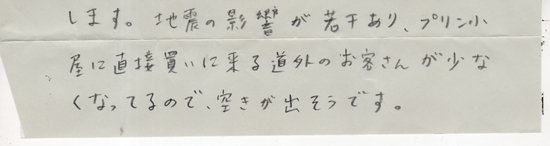 します。地震の影響が若干あり、プリン小
屋に直接買いに来る道外のお客さんが少な
くなってるので、空きが出そうです。